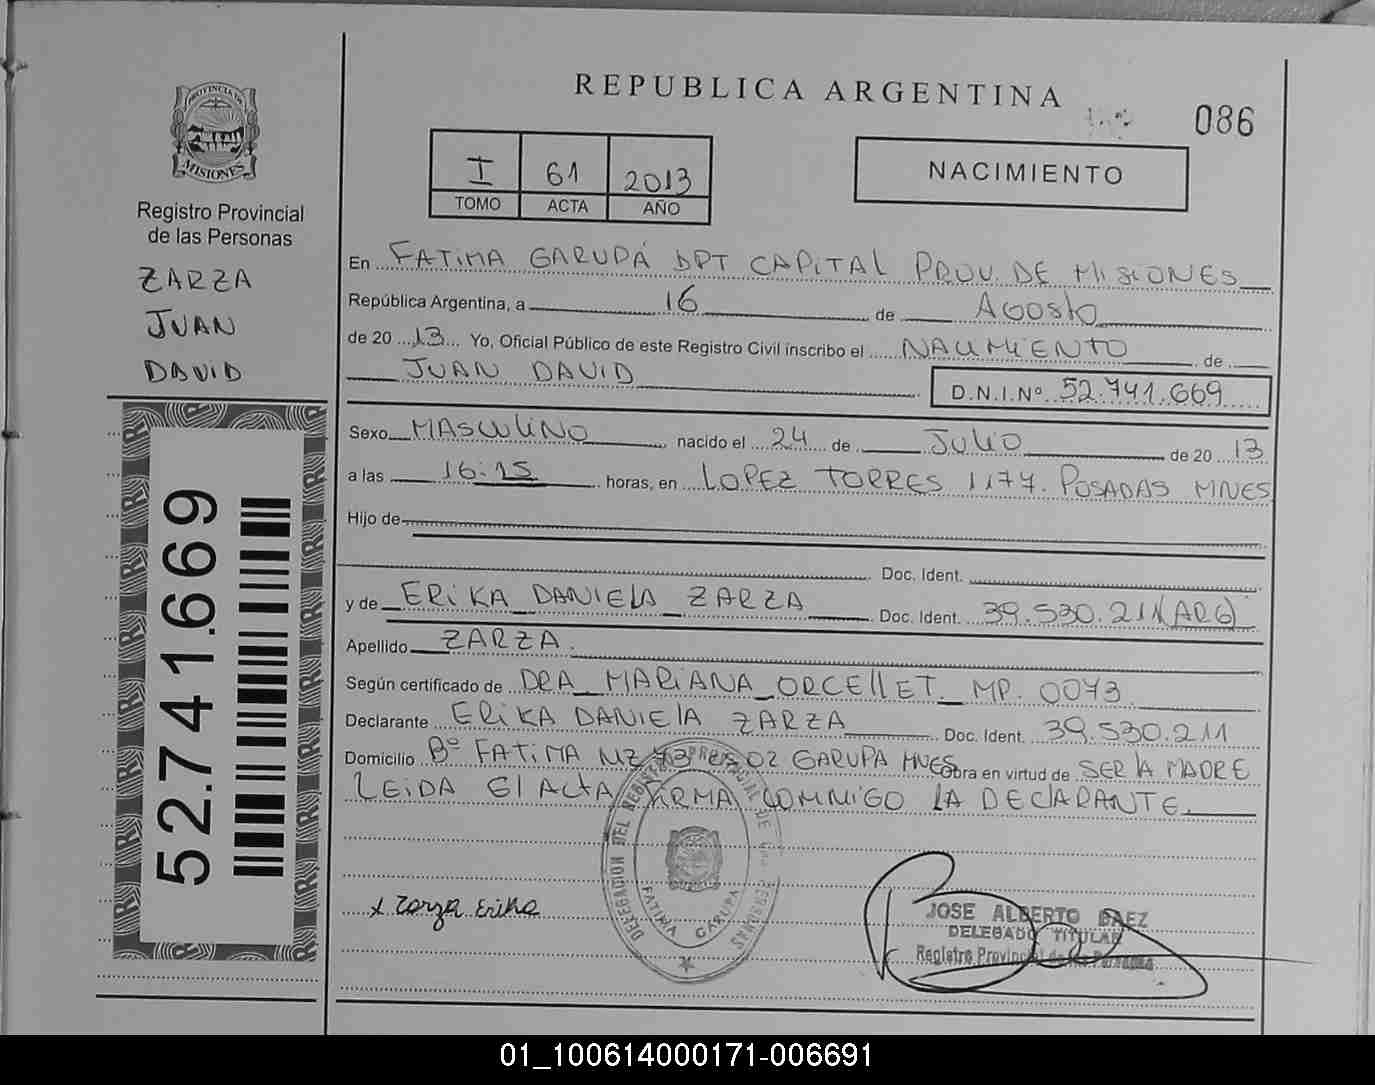 REPUBLICA ARGENTINA
086
PROVINCIA DE
MISIONES
Registro Provincial
de las Personas
ZARZA
JUAN
DAVID
I 61 2013
TOMO ACTA AÑO
NACIMIENTO
En FATIMA GARUPÁ DPT CAPITAL PROV. DE MISIONES
República Argentina, a 16 de Agosto
de 20 13 Yo, Oficial Público de este Registro Civil inscribo el NACIMIENTO de
JUAN DAVID D.N.I.Nº 52.741.669
Sexo MASCULINO nacido el 24 de JULIO de 20 13
a las 16:15 horas, en LOPEZ TORRES 1177. POSADAS MNES
Hijo de
Doc. Ident.
y de ERIKA DANIELA ZARZA Doc. Ident. 39.530.211 (ARG)
Apellido ZARZA.
Según certificado de DRA MARIANA ORCELLET. MP. 0073
Declarante ERIKA DANIELA ZARZA Doc. Ident. 39.530.211
Domicilio Bº FATIMA MZ 02 GARUPA MNES Obra en virtud de SER LA MADRE
LEIDA El ActA FIRMA COMMIGO LA DECLARANTE
52.741.669
DELEGACION DEL REGISTRO PROVINCIAL DE LAS PERSONAS
FATIMA GARUPA
x Zarza Erika
JOSE ALBERTO BAEZ
DELEGADO TITULAR
Registro Provincial de las Personas
01_100614000171-006691